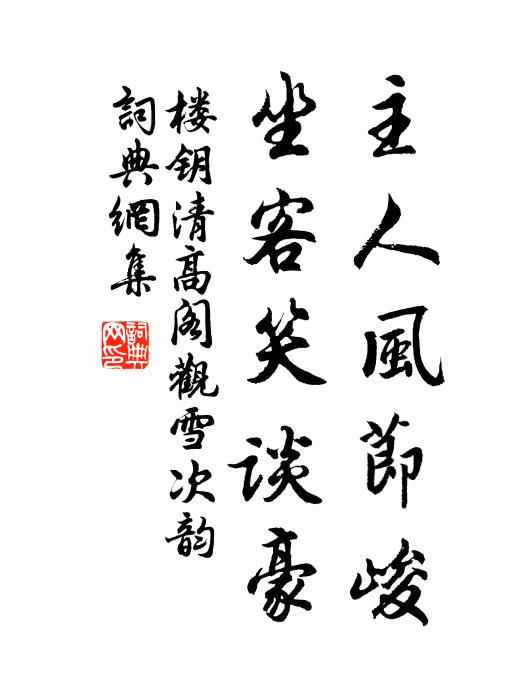 主人風節峻
坐客笑談豪
楼钥清高阁觀雪次韵
詞典網集
詞典网印